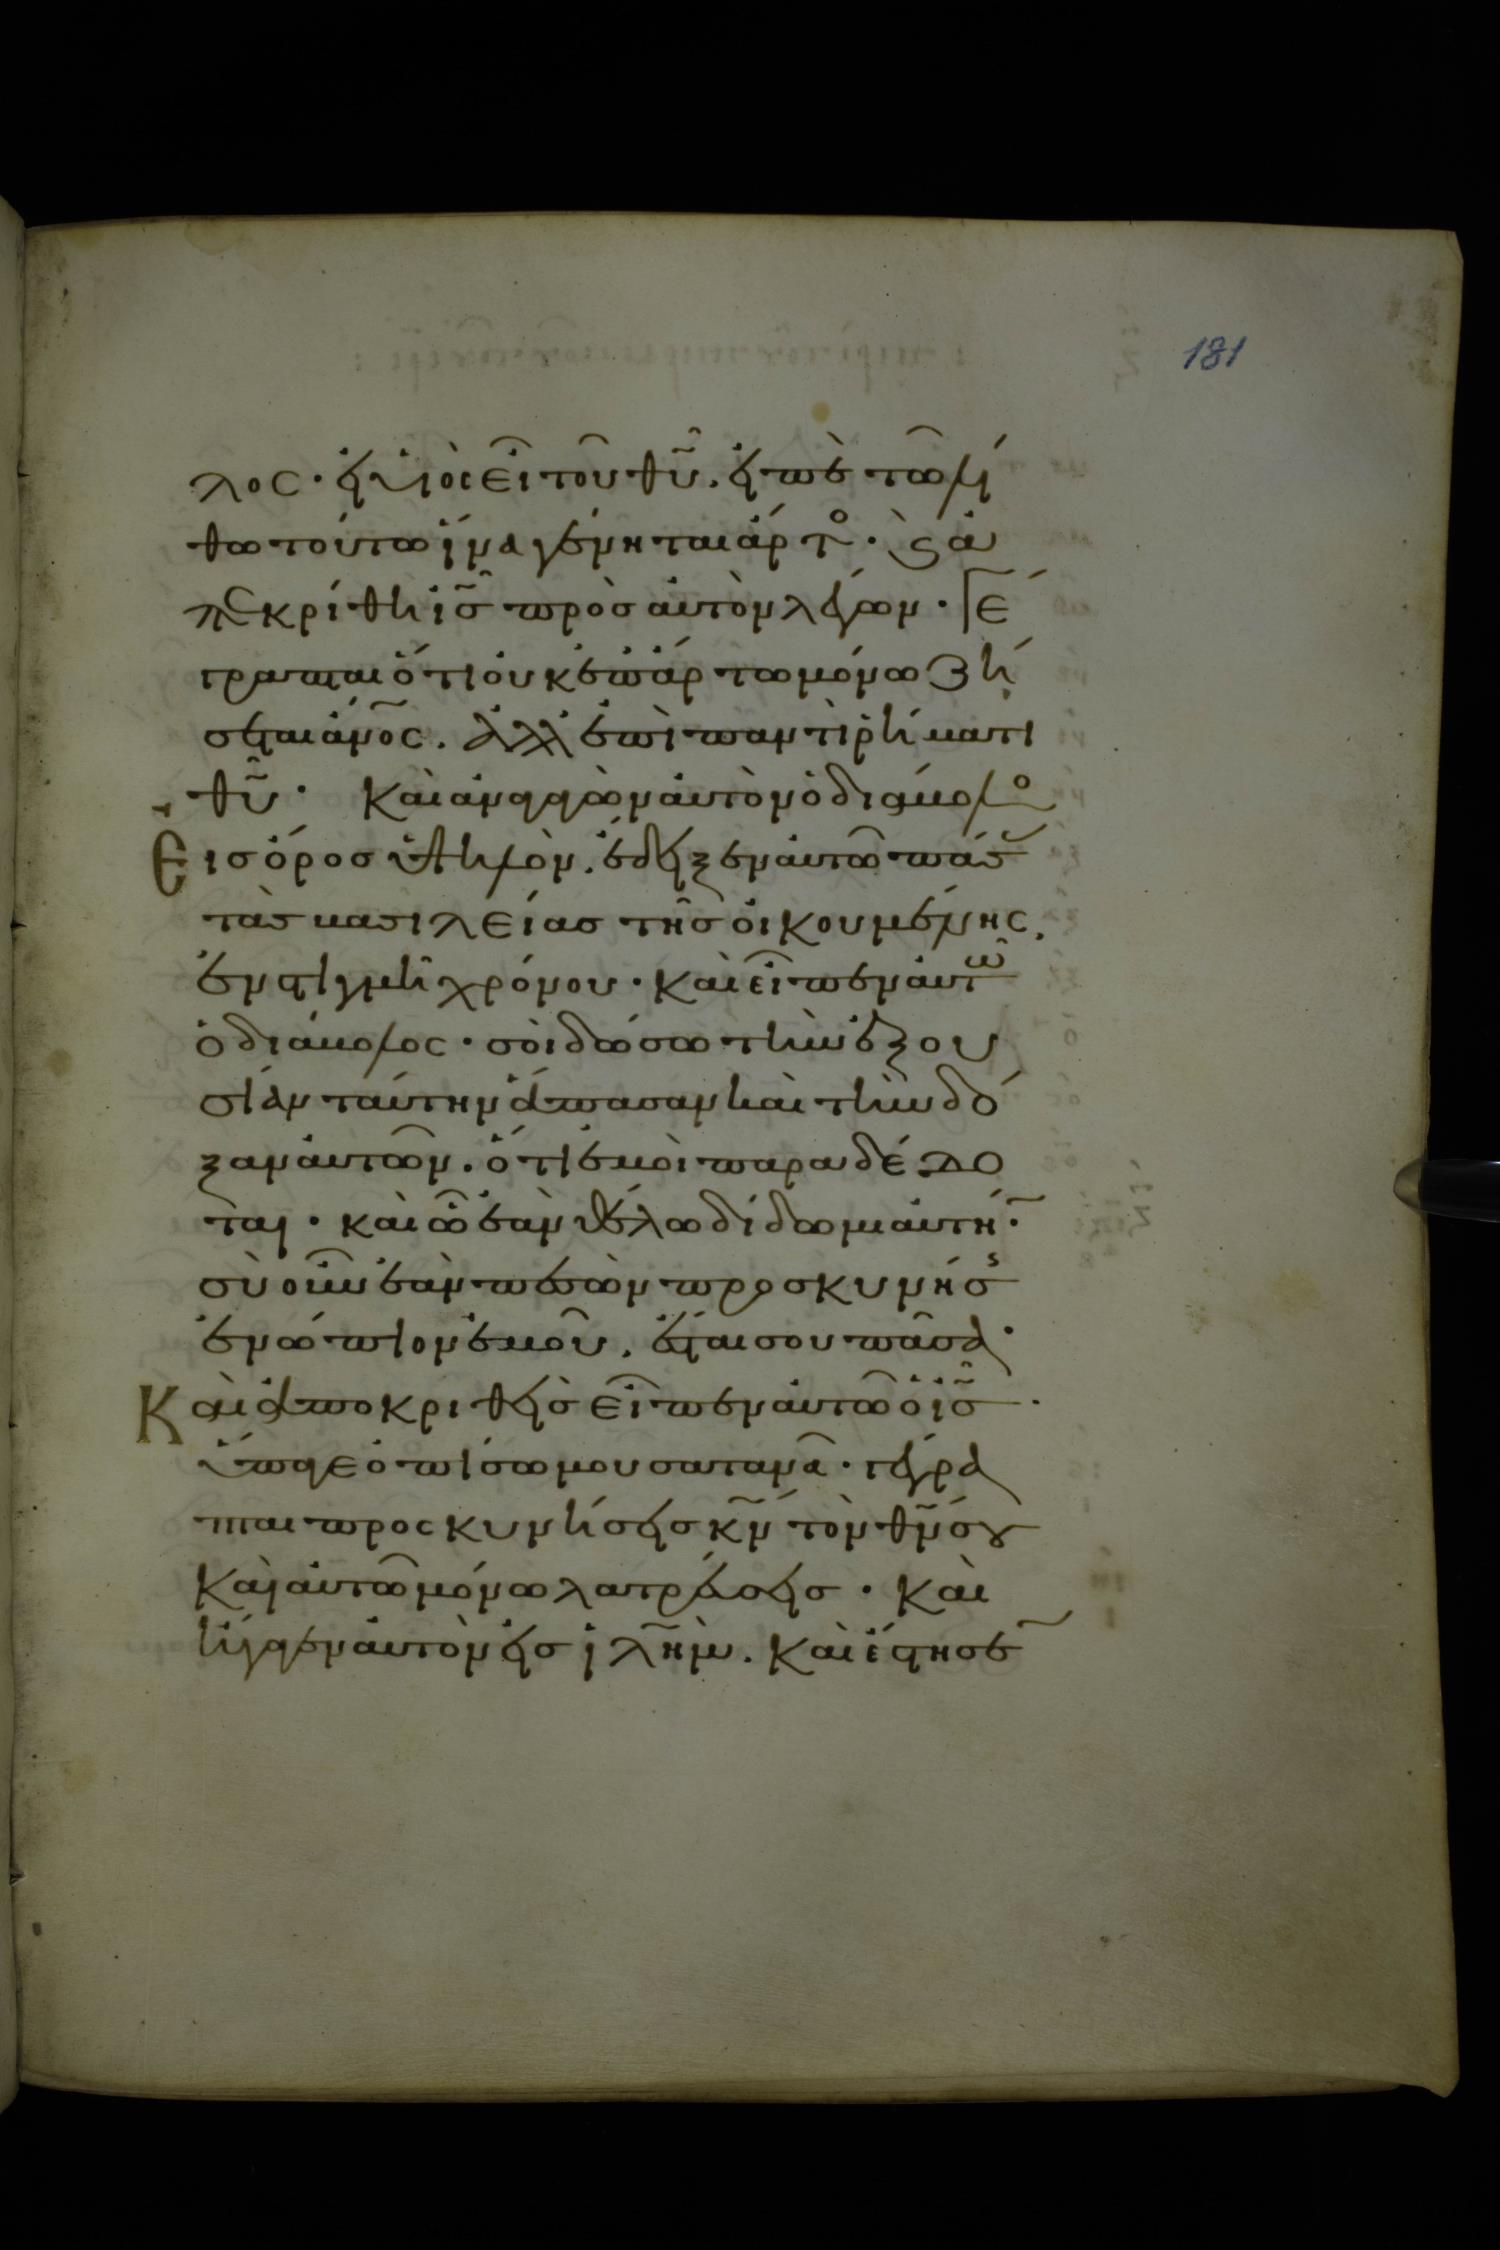 181
λος· εἰ υἱὸς εἶ τοῦ θυ̅. εἰπὲ τῶ λί
θω τούτω ἵνα γένηται ἄρτο· καὶ ἀ
πεκρίθη ἰς̅ πρὸς αὐτὸν λέγων· Γέ
γραπται ὅτι οὐκ ἐπ' ἄρτω μόνω ζή
σεται ἀνο̅ς. ἀλλ' ἐπὶ παντὶ ῥήματι
θυ̅· Καὶ ἀναγαγὼν αὐτὸν ὁ διάβολο
εἰς ὄρος ὑψηλὸν. ἔδειξεν αὐτῶ πάσ
τὰς βασιλείας τῆς οἰκουμένης.
ἐν στιγμῆ χρόνου· καὶ εἶπεν αὐτῶ
ὁ διάβολος· σοὶ δώσω τὴν ἐξου
σίαν ταύτην ἅπασαν καὶ τὴν δό
ξαν αὐτῶν. ὅτι ἐμοὶ παραδέδο
ται· καὶ ὧ ἐὰν θέλω δίδωμι αὐτή·
σὺ οὖν ἐὰν πεσὼν προσκυνήσς
ἐνώπιον ἐμοῦ. ἔσται σου πᾶσα·
Καὶ ἀποκριθεὶς εἶπεν αὐτῶ ὁ ἰς̅·
ὕπαγε ὀπίσω μου σατανᾶ· γέγρα
πται προσκυνήσεις κν̅ τὸν θν̅ σου
καὶ αὐτῶ μόνω λατρεύσεις· Καὶ
ἤγαγεν αὐτὸν εἰς ἱλη̅μ. καὶ ἔστησε̅